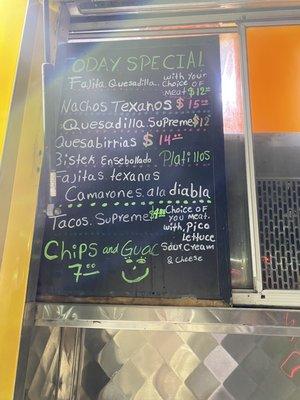 TODAY SPECIAL
Fajita Quesadilla.. with your choice of meat $12
Nachos Texanos $15
Quesadilla Supreme $12
Quesabirrias $14
Bistek Ensebollado Platillos
Fajitas texanas
Camarones ala diabla
Tacos. Supreme Choice of you meat.
with, Pico
lettuce
Sour cream
& cheese
Chips and Guac
7.00